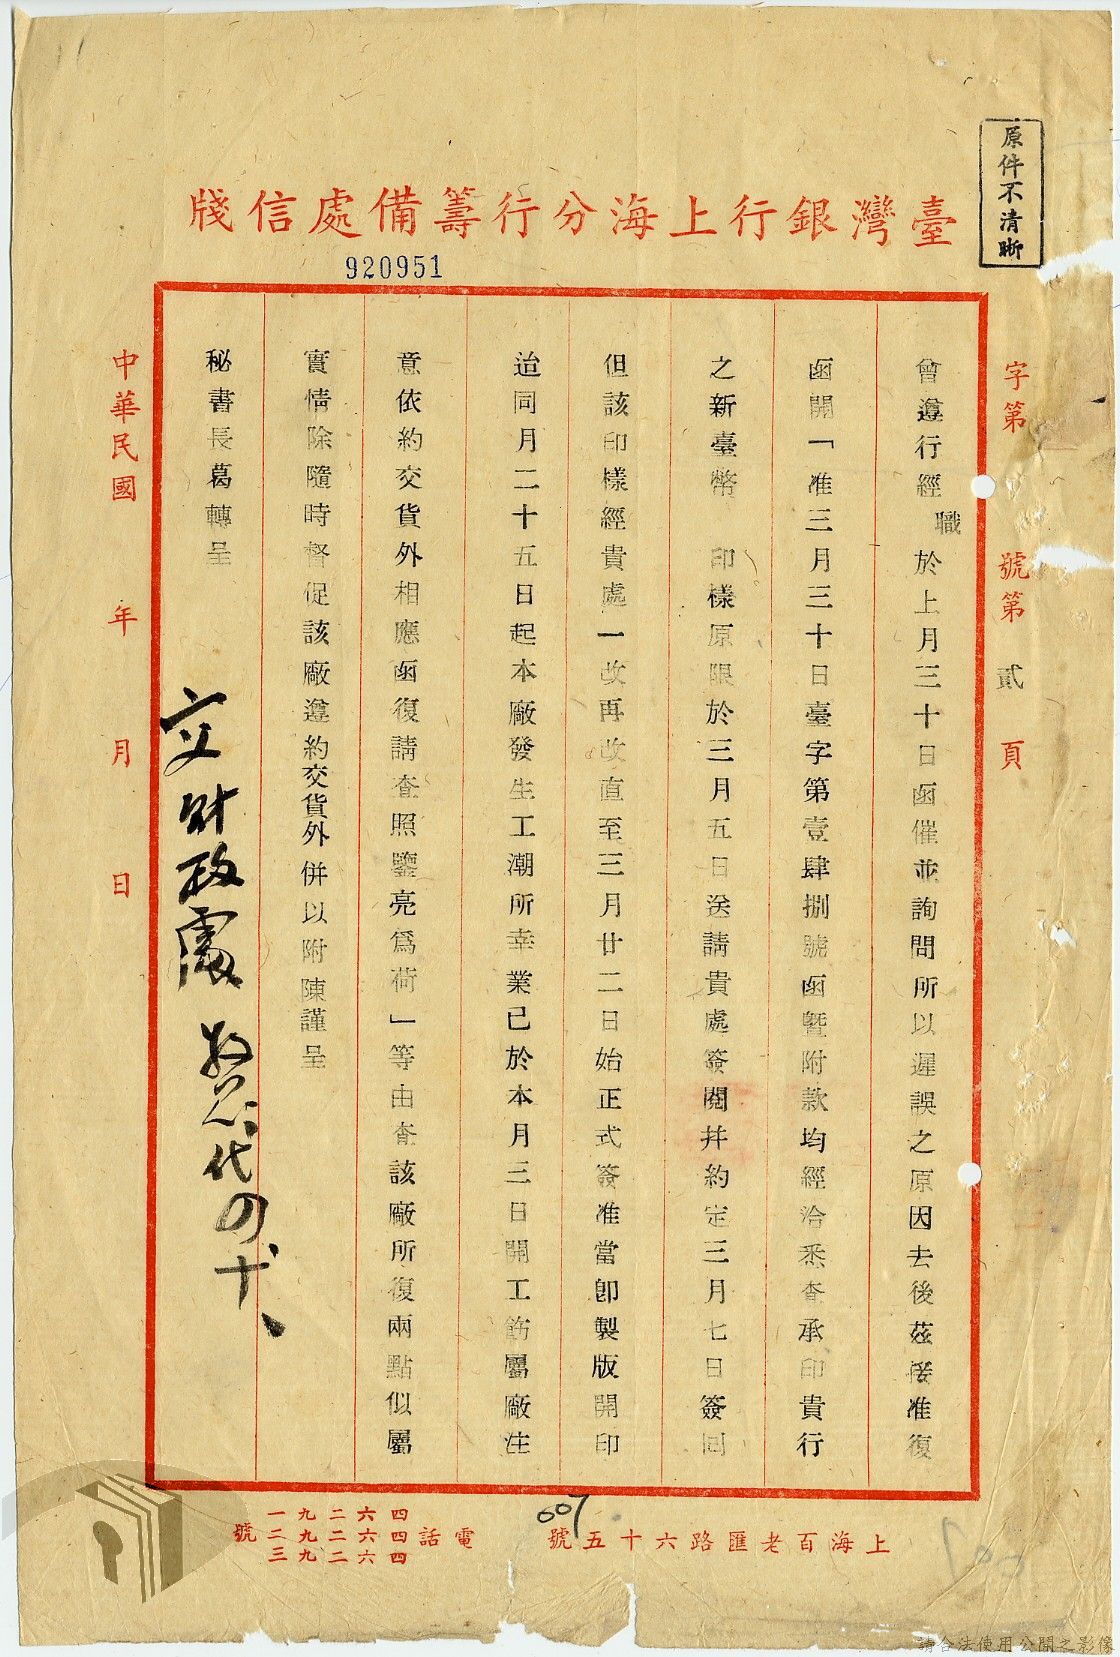 原件不清晰
臺灣銀行上海分行籌備處信牋
920951
字第　號第貳頁
曾遵行經職於上月三十日函催並詢問所以遲誤之原因去後茲接准復
函開「准三月三十日臺字第壹肆捌號函暨附款均經洽悉查承印貴行
之新臺幣　印樣原限於三月五日送請貴處簽閱并約定三月七日簽回
但該印樣經貴處一改再改直至三月廿二日始正式簽准當卽製版開印
迨同月二十五日起本廠發生工潮所幸業已於本月三日開工飭屬廠注
意依約交貨外相應函復請查照鑒亮爲荷」等由查該廠所復兩點似屬
實情除隨時督促該廠遵約交貨外併以附陳謹呈
秘書長葛轉呈
交財政處
代四十、
中華民國　年　月　日
上海百老匯路六十五號
607
電話
四六二九一
四六二九二
四六二九三
號
請合法使用公開之影像